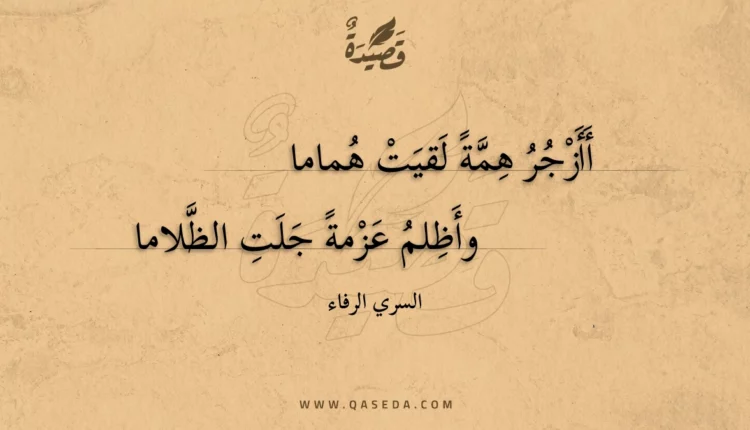 قَصِيدَةٌ
أَأَزْجُرُ هِمَّةً لَقيَتْ هُماما
وأَظِلمُ عَزْمةً جَلَتِ الظَّلاما
السري الرفاء
WWW.QASEDA.COM